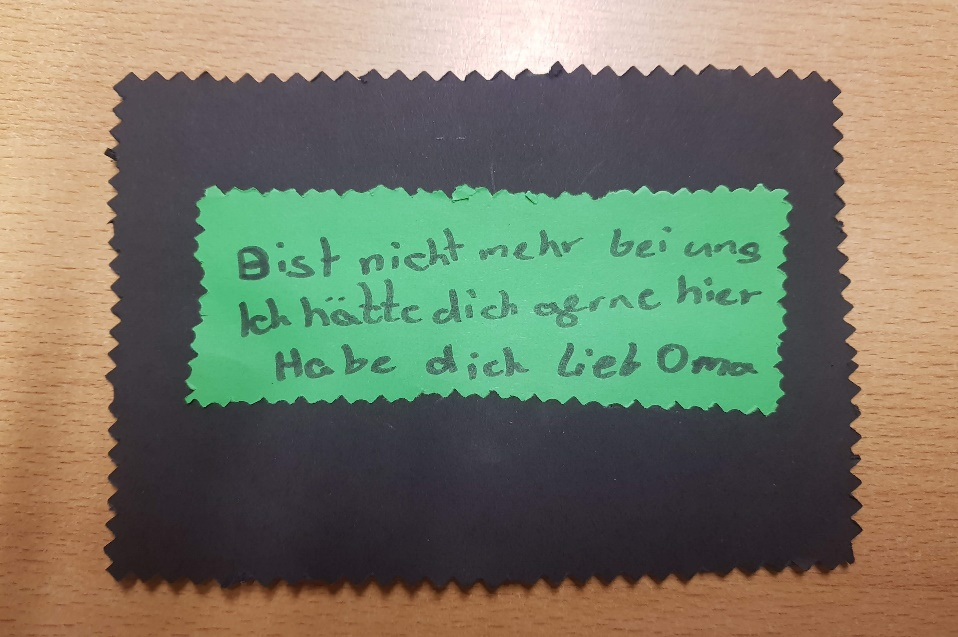 Bist nicht mehr bei uns
Ich hätte dich gerne hier
Habe dich lieb Oma